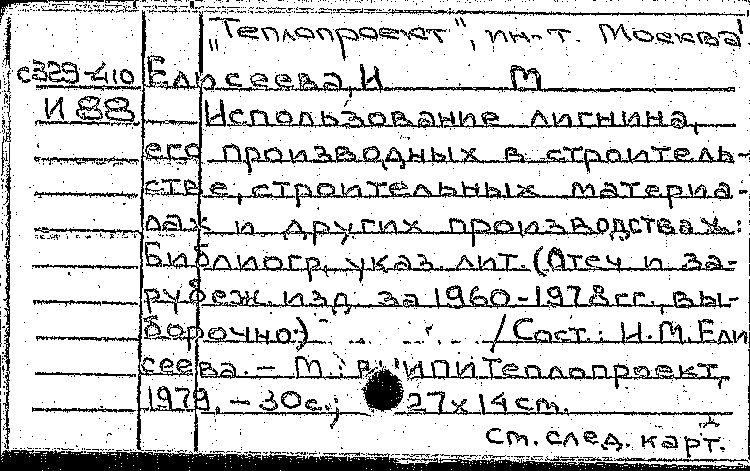 "Теплопроект", ин-т. Москва
с329-410 Елисеева, И М
И 88 Использование лигнина,
его производных в строитель-
стве, строительных материа-
лах и других производствах:
Библиогр. указ. лит. (Отеч и за-
рубеж. изд. за 1960-1978гг., вы-
борочно) / Сост.: И.М. Ели
сеева. - М.: ВНИПИТеплопроект,
1979. - 30с.; 27х14см.
см. след. карт.